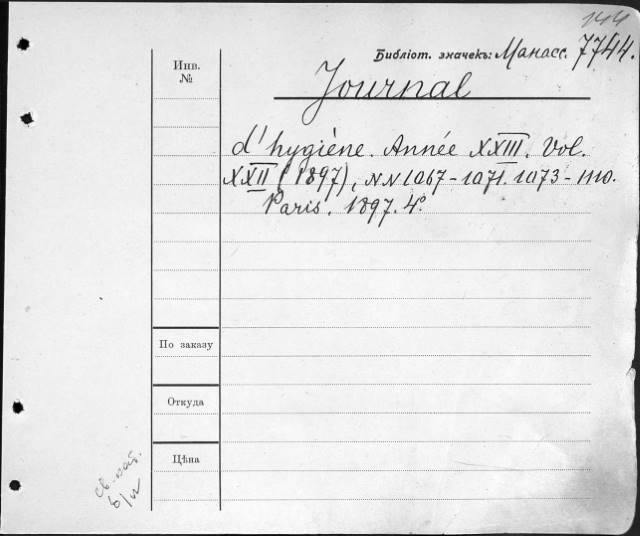 144
Библіот. значекъ: Манасс. 7744.
Инв.
№
Journal
d'hygiène. Année XXIII. Vol.
XXII (1897), NN 1067-1071. 1073-1110.
Paris. 1897. 4°
По заказу
Откуда
Цѣна